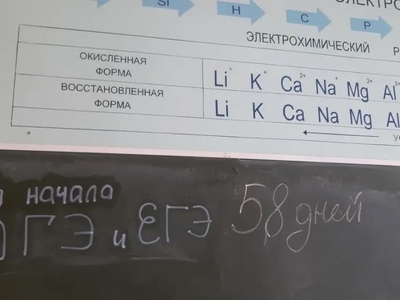 Si H C P
ЭЛЕКТРОХИМИЧЕСКИЙ Р
ОКИСЛЕННАЯ ФОРМА Li⁺ K⁺ Ca²⁺ Na⁺ Mg²⁺ Al³⁺
ВОССТАНОВЛЕННАЯ ФОРМА Li K Ca Na Mg Al
начала
ОГЭ и ЕГЭ 58 дней